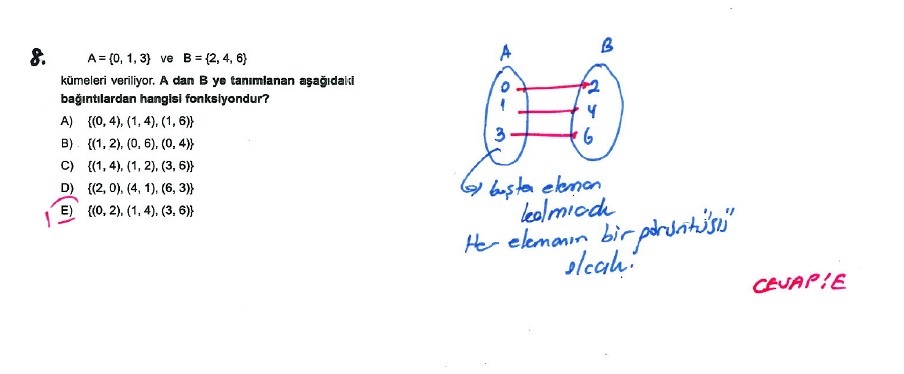 8. A = {0, 1, 3} ve B = {2, 4, 6}
kümeleri veriliyor. A dan B ye tanımlanan aşağıdaki
bağıntılardan hangisi fonksiyondur?
A) {(0, 4), (1, 4), (1, 6)}
B) {(1, 2), (0, 6), (0, 4)}
C) {(1, 4), (1, 2), (3, 6)}
D) {(2, 0), (4, 1), (6, 3)}
E) {(0, 2), (1, 4), (3, 6)}
A B
0 2
1 4
3 6
boşta eleman
kalmıcak
Her elemanın bir görüntü"sü"
olcak.
CEVAP: E